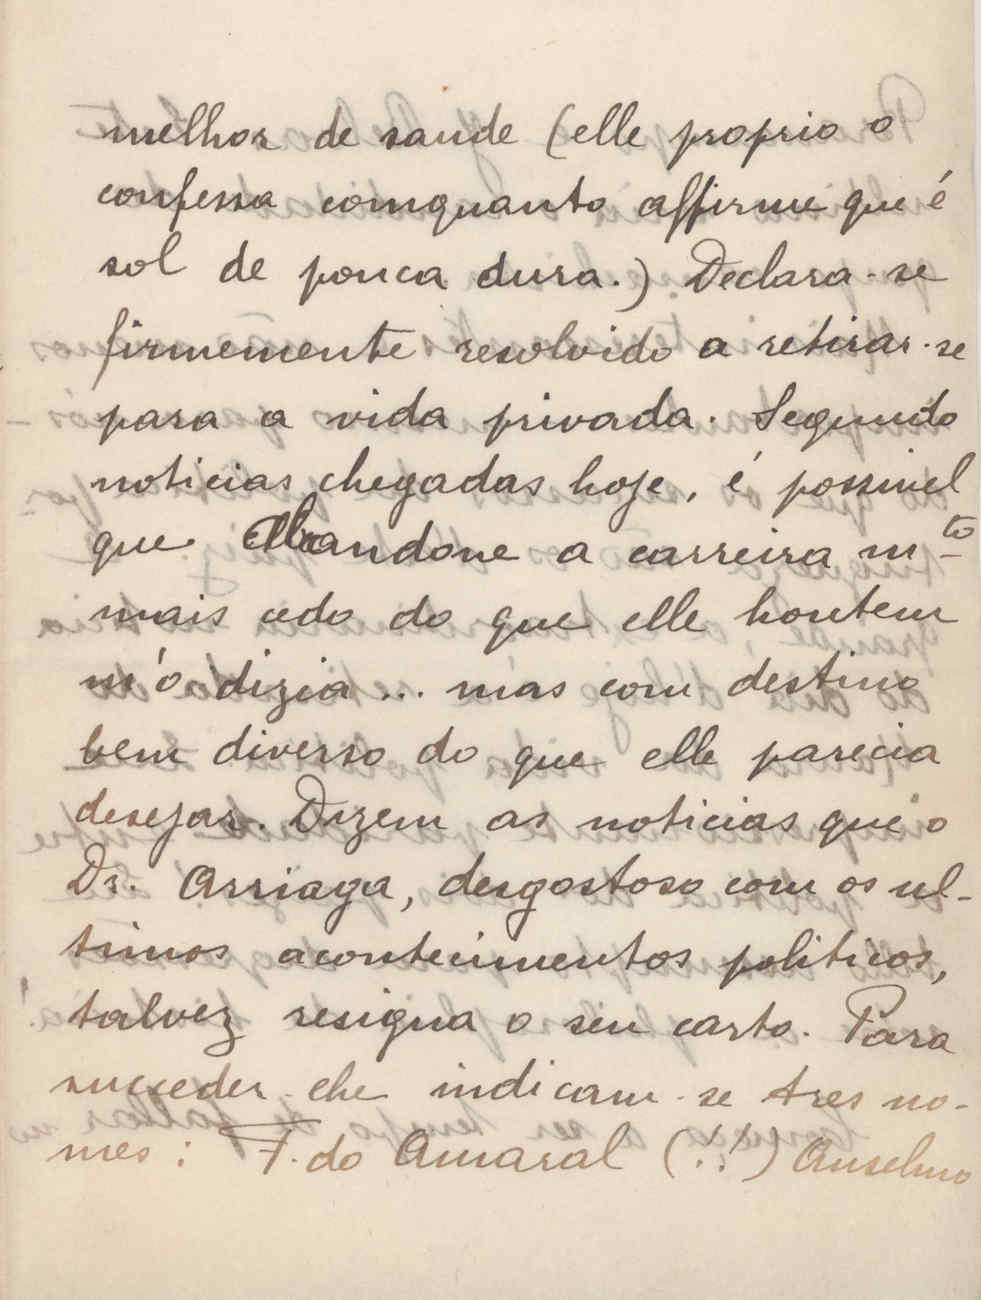 melhor de saude (elle proprio o
confessa comquanto affirme que é
sol de pouca dura.) Declara-se
firmemente resolvido a retirar-se
para a vida privada. Segundo
noticias chegadas hoje, é possivel
que abandone a carreira m.to
mais cedo do que elle hontem
m'o dizia... mas com destino
bem diverso do que elle parecia
desejar. Dizem as noticias que o
Dr. Arriaga, desgostoso com os ul-
timos acontecimentos politicos,
talvez resigna o seu carto. Para
succeder-lhe indicam-se tres no-
mes: F. do Amaral (!!) Anselmo